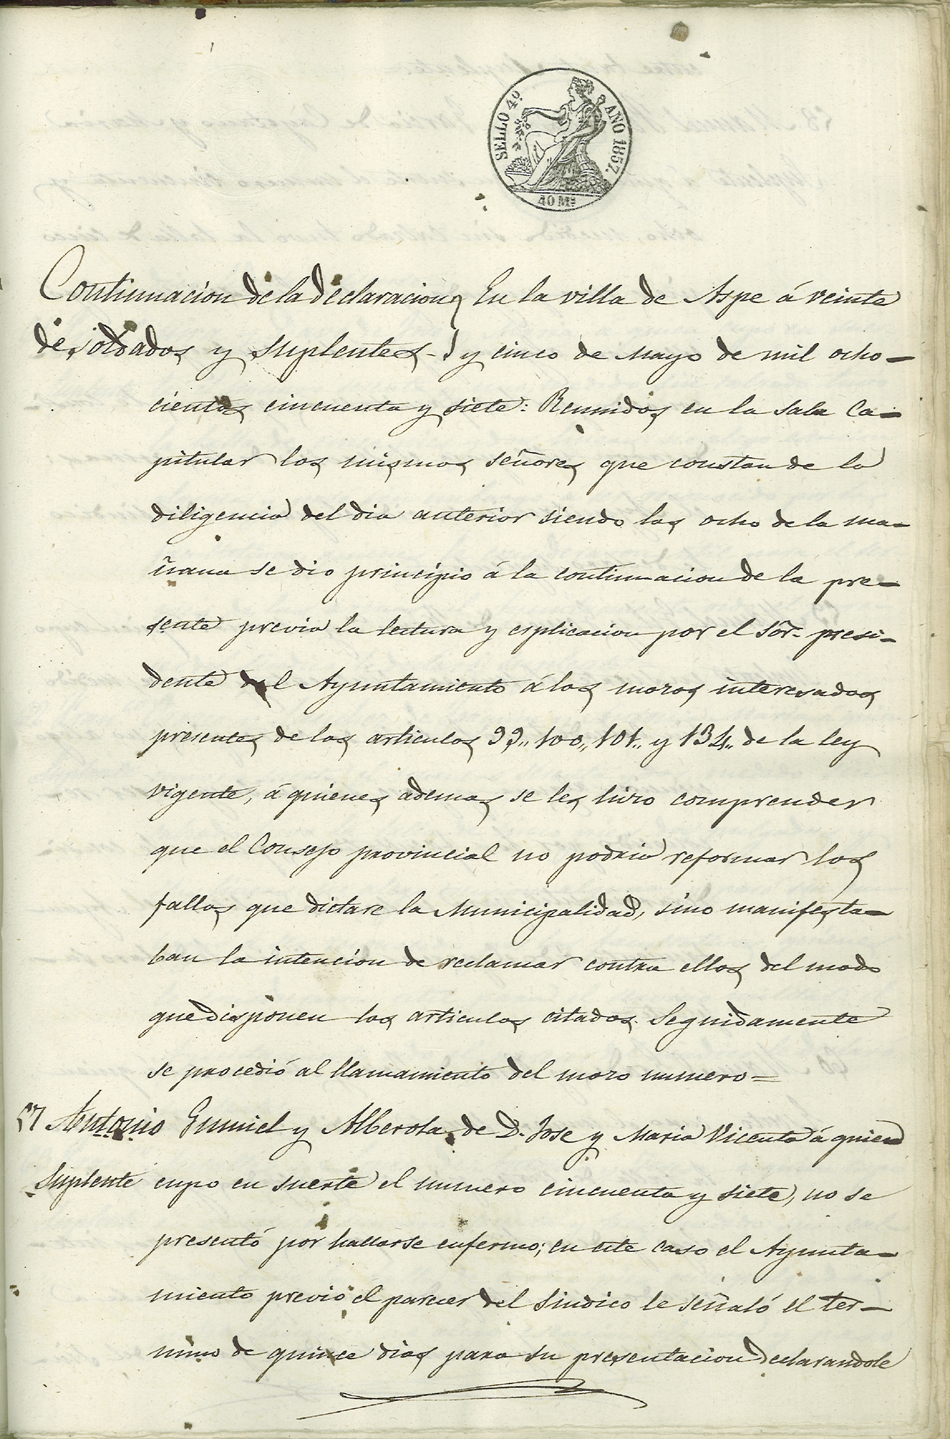 SELLO 4º. AÑO 1857.
40 Ms
Continuacion de la declaracion} En la villa de Aspe á veinte
de soldados y suplentes-} y cinco de Mayo de mil ocho-
cientos cincuenta y siete: Reunidos en la sala Ca-
pitular los mismos señores que constan de la
diligencia del dia anterior siendo las ocho de la ma-
ñana se dio principio á la continuacion de la pre-
sente previa la lectura y esplicacion por el Sôr. presi-
dente del Ayuntamiento á los mozos interesados
presentes de los articulos 99,, 100,, 101,, y 134,, de la ley
vigente, á quienes ademas se les hizo comprender
que el Consejo provincial no podria reformar los
fallos que dictare la Municipalidad, sino manifesta-
ban la intencion de reclamar contra ellos del modo
que disponen los articulos citados. Seguidamente
se procedió al llamamiento del mozo numero=
57 Antonio Gumiel y Alberola de D. Jose y Maria Vicenta á quien
Suplente cupo en suerte el numero cincuenta y siete, no se
presentó por hallarse enfermo; en este caso el Ayunta-
miento previó el parecer del Sindico le señaló el ter-
mino de quince dias para su presentacion declarandole